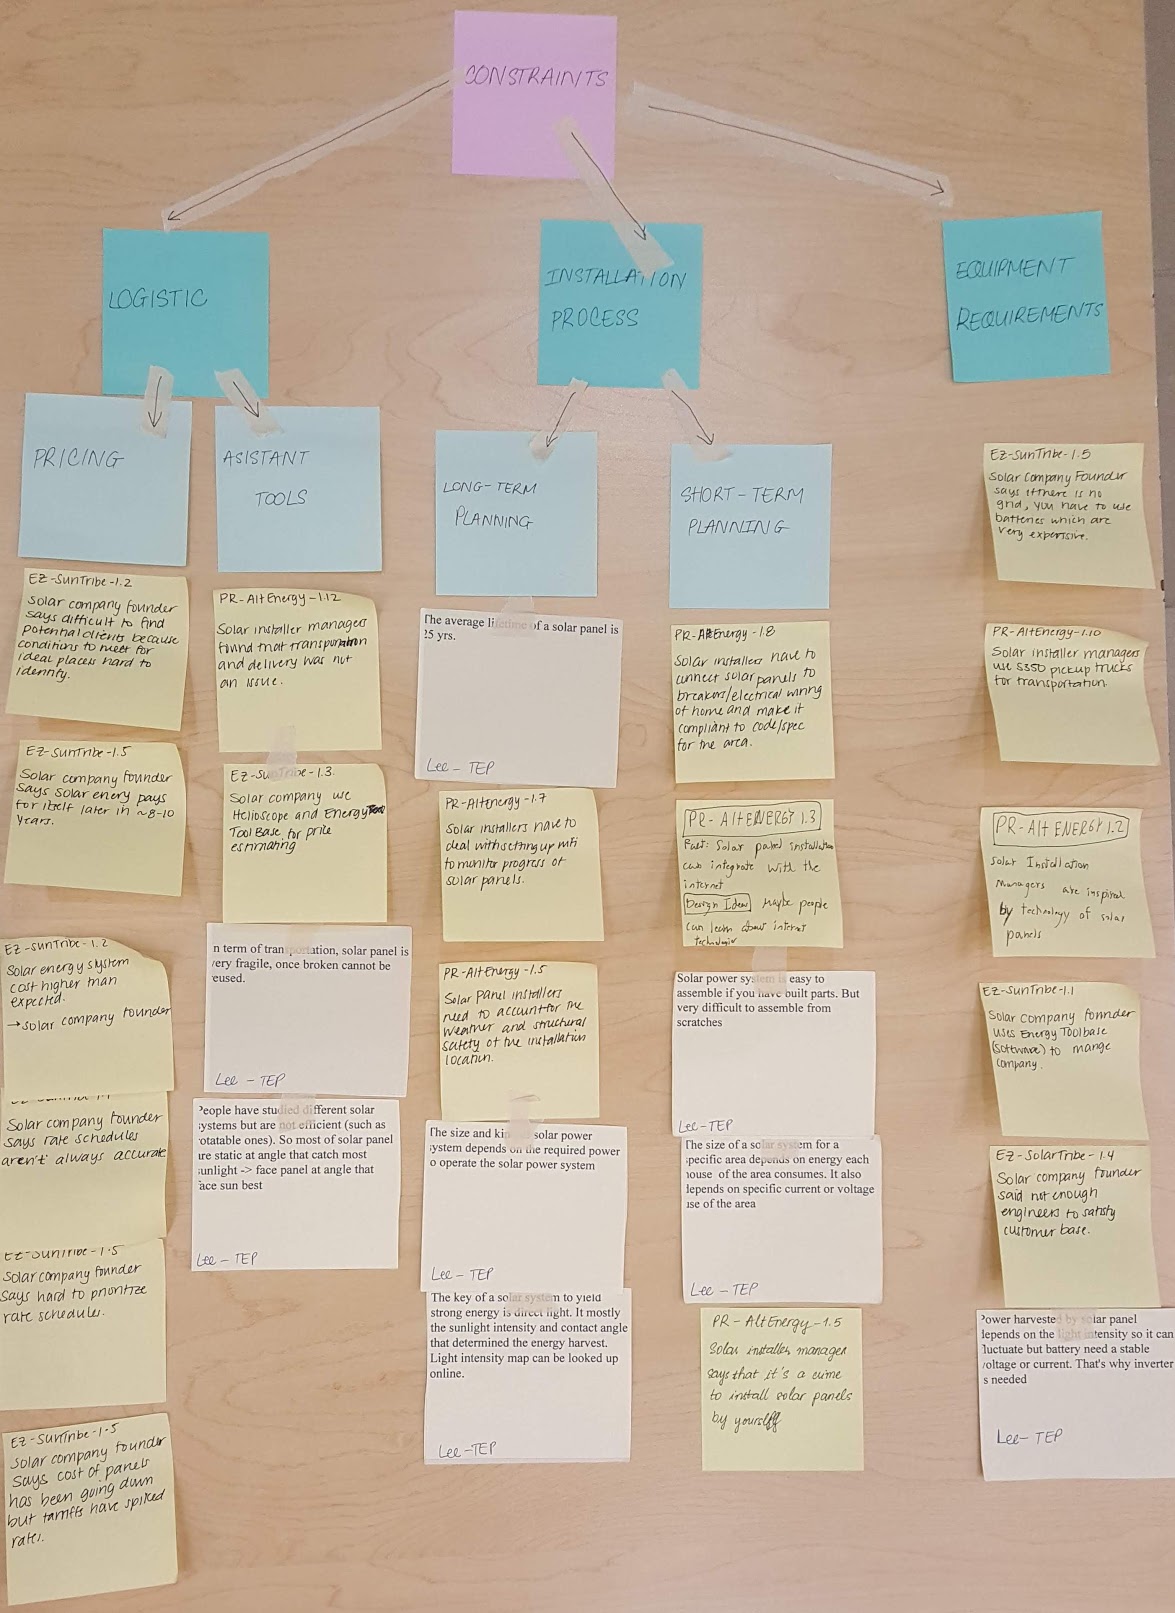 CONSTRAINTS
LOGISTIC
INSTALLATION
PROCESS
EQUIPMENT
REQUIREMENTS
PRICING
ASISTANT
TOOLS
LONG-TERM
PLANNING
SHORT-TERM
PLANNING
EZ-SunTribe-1.2
Solar company founder
says difficult to find
potential clients because
conditions to meet for
ideal places hard to
identify.
EZ-SunTribe-1.5
Solar company founder
says solar enery pays
for itself later in ~8-10
years.
EZ-SunTribe-1.2
Solar energy skystem
cost higher than
expected.
→solar company founder
Solar company founder
says rate schedules
aren't always accurate
EZ-SunTribe-1.5
Solar company founder
says hard to prioritize
rate schedules.
EZ-SunTribe-1.5
Solar company founder
says cost of panels
has been going down
but tarriffs have spiked
rates.
PR-AltEnergy-1.12
Solar installer managers
found that transportation
and delivery was not
an issue.
EZ-SunTribe-1.3.
Solar company use
Helioscope and Energy
Tool Base for price
estimating
n term of transportation, solar panel is
very fragile, once broken cannot be
reused.
Lee-TEP
People have studied different solar
systems but are not efficient (such as
rotatable ones). So most of solar panel
are static at angle that catch most
sunlight -> face panel at angle that
face sun best
Lee-TEP
The average lifetime of a solar panel is
25 yrs.
Lee-TEP
PR-AltEnergy-1.7
Solar installers have to
deal with setting up wifi
to monitor progress of
solar panels.
PR-AltEnergy-1.5
Solar panel installers
need to account for the
weather and structural
safety of the installation
location.
The size and kind solar power
system depends on the required power
to operate the solar power system
Lee-TEP
The key of a solar system to yield
strong energy is direct light. It mostly
the sunlight intensity and contact angle
that determined the energy harvest.
Light intensity map can be looked up
online.
Lee-TEP
PR-AltEnergy-1.8
Solar installers have to
connect solar panels to
breakers/electrical wiring
of home and make it
compliant to code/spec
for the area.
PR-AltENERGY 1.3
Fact: Solar panel installation
can integrate with the
internet
Design Idea Maybe people
can learn about internet
Solar power system is easy to
assemble if you have built parts. But
very difficult to assemble from
scratches
Lee-TEP
The size of a solar system for a
specific area depends on energy each
house of the area consumes. It also
depends on specific current or voltage
use of the area
Lee-TEP
PR-AltEnergy-1.5
Solar installer manager
says that it's a crime
to install solar panels
by yourself
EZ-SunTribe-1.5
Solar Company Founder
says if there is no
grid, you have to use
batteries which are
very expensive.
PR-AltEnergy-1.10
Solar installer managers
use S350 pickup trucks
for transportation.
PR-Alt ENERGY 1.2
Solar Installation
Managers are inspired
by technology of solar
panels
EZ-SunTribe-1.1
Solar Company founder
uses Energy Toolbase
(software) to mange
company.
EZ-SolarTribe-1.4
Solar company founder
said not enough
engineers to satisfy
customer base.
Power harvested by solar panel
depends on the light intensity so it can
fluctuate but battery need a stable
voltage or current. That's why inverter
is needed
Lee-TEP